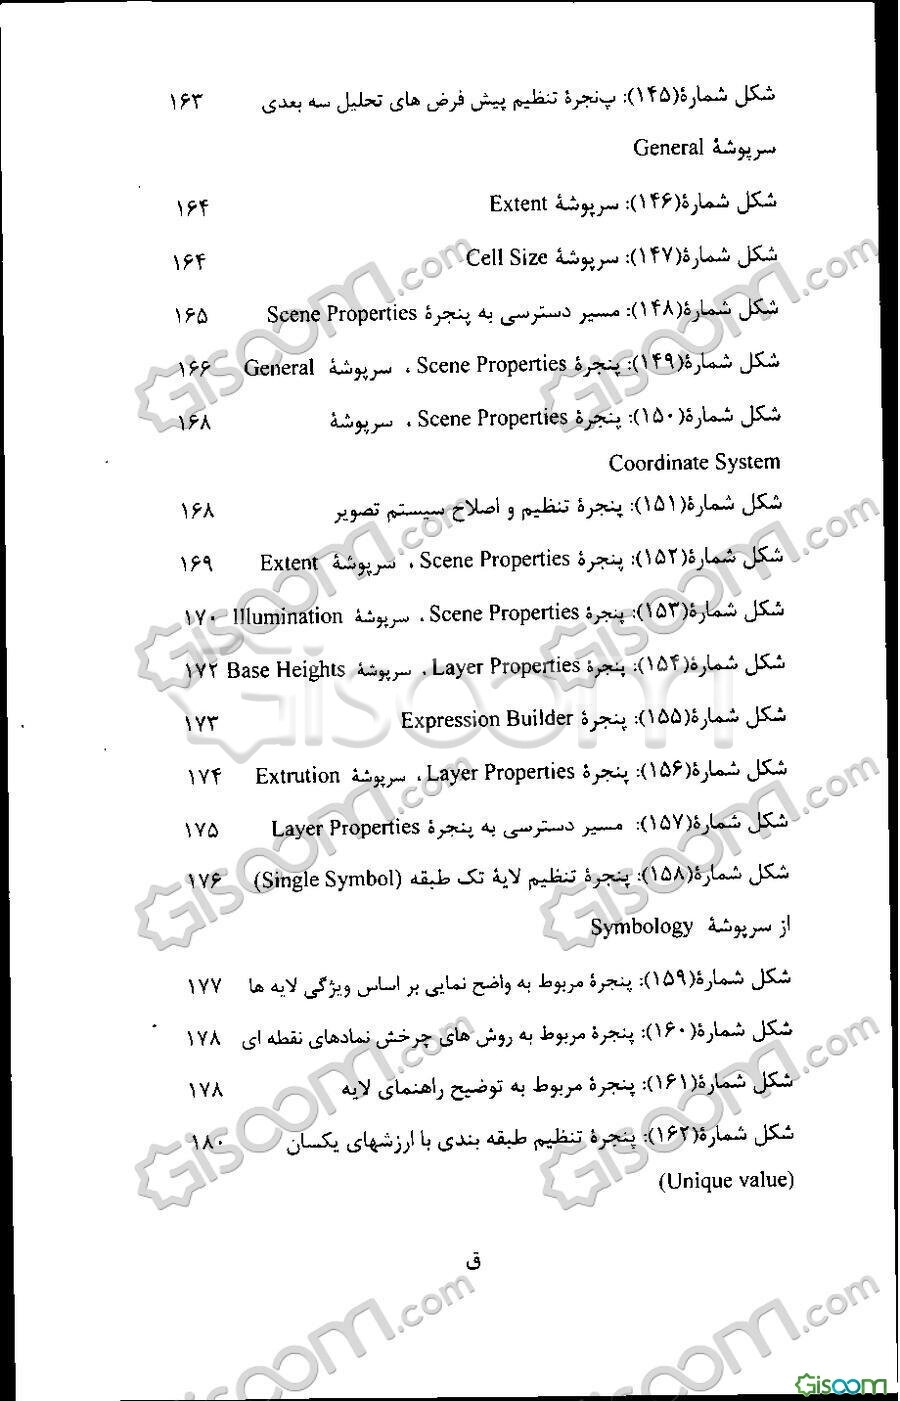 شکل شمارهٔ(۱۴۵): پنجرهٔ تنظیم پیش فرض های تحلیل سه بعدی ۱۶۳
سرپوشهٔ General
شکل شمارهٔ(۱۴۶): سرپوشهٔ Extent ۱۶۴
شکل شمارهٔ(۱۴۷): سرپوشهٔ Cell Size ۱۶۴
شکل شمارهٔ(۱۴۸): مسیر دسترسی به پنجرهٔ Scene Properties ۱۶۵
شکل شمارهٔ(۱۴۹): پنجرهٔ Scene Properties ، سرپوشهٔ General ۱۶۶
شکل شمارهٔ(۱۵۰): پنجرهٔ Scene Properties ، سرپوشهٔ ۱۶۸
Coordinate System
شکل شمارهٔ(۱۵۱): پنجرهٔ تنظیم و اصلاح سیستم تصویر ۱۶۸
شکل شمارهٔ(۱۵۲): پنجرهٔ Scene Properties ، سرپوشهٔ Extent ۱۶۹
شکل شمارهٔ(۱۵۳): پنجرهٔ Scene Properties ، سرپوشهٔ Illumination ۱۷۰
شکل شمارهٔ(۱۵۴): پنجرهٔ Layer Properties ، سرپوشهٔ Base Heights ۱۷۲
شکل شمارهٔ(۱۵۵): پنجرهٔ Expression Builder ۱۷۳
شکل شمارهٔ(۱۵۶): پنجرهٔ Layer Properties ، سرپوشهٔ Extrution ۱۷۴
شکل شمارهٔ(۱۵۷): مسیر دسترسی به پنجرهٔ Layer Properties ۱۷۵
شکل شمارهٔ(۱۵۸): پنجرهٔ تنظیم لایهٔ تک طبقه (Single Symbol) ۱۷۶
از سرپوشهٔ Symbology
شکل شمارهٔ(۱۵۹): پنجرهٔ مربوط به واضح نمایی بر اساس ویژگی لایه ها ۱۷۷
شکل شمارهٔ(۱۶۰): پنجرهٔ مربوط به روش های چرخش نمادهای نقطه ای ۱۷۸
شکل شمارهٔ(۱۶۱): پنجرهٔ مربوط به توضیح راهنمای لایه ۱۷۸
شکل شمارهٔ(۱۶۲): پنجرهٔ تنظیم طبقه بندی با ارزشهای یکسان ۱۸۰
(Unique value)
ق
Gisoom